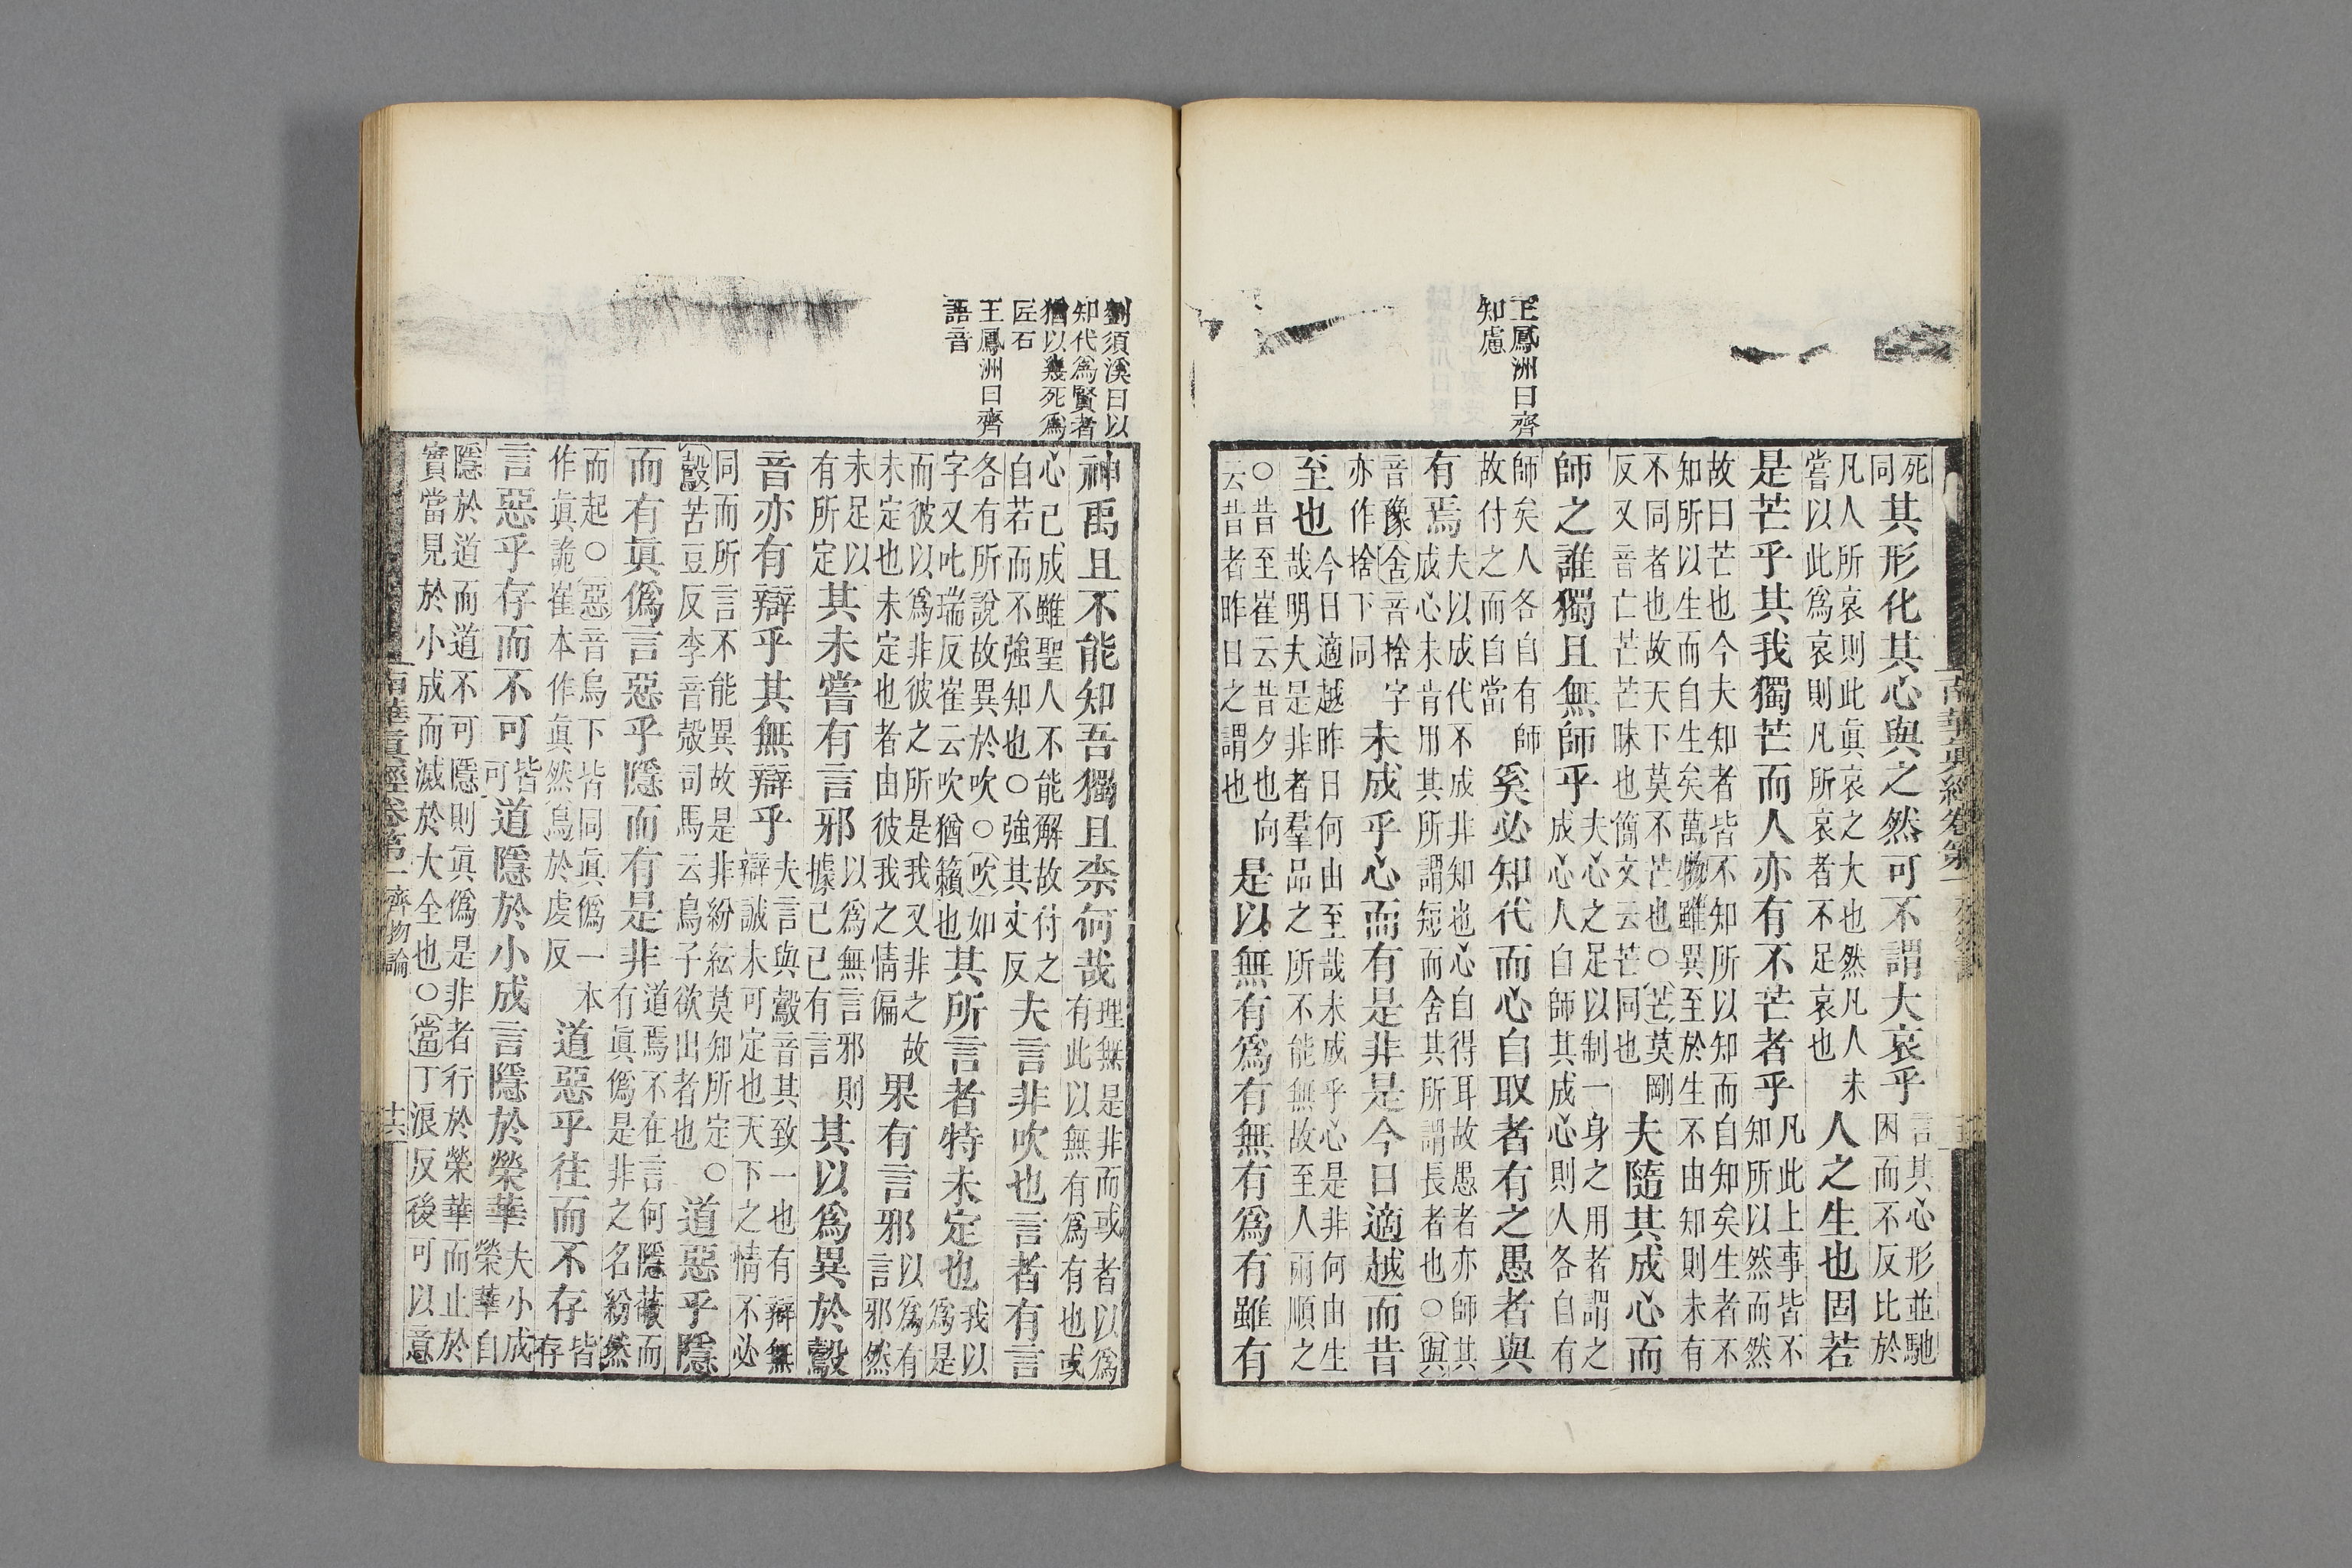 王鳳洲曰齊
知慮
南華眞經卷第一
死同其形化其心與之然可不謂大哀乎言其心形並馳困而不反比於
凡人所哀則此眞哀之大也然凡人未嘗以此爲哀則凡所哀者不足哀也人之生也固若
是芒乎其我獨芒而人亦有不芒者乎凡此上事皆不知所以然而然
故曰芒也今夫知者皆不知所以知而自知矣生者不知所以生而自生矣萬物雖異至於生不由知則未有
不同者也故天下莫不芒也○芒莫剛反又音亡芒芒昧也簡文云芒同也夫隨其成心而
師之誰獨且無師乎夫心之足以制一身之用者謂之成心人自師其成心則人各自有
師矣人各自有師故付之而自當奚必知代而心自取者有之愚者與
有焉夫以成代不成非知也心自得耳故愚者亦師其成心未肯用其所謂短而舍其所謂長者也○與
音豫舍音捨字亦作捨下同未成乎心而有是非是今日適越而昔
至也今日適越昨日何由至哉未成乎心是非何由生哉明夫是非者羣品之所不能無故至人兩順之
○昔至崔云昔夕也向云昔者昨日之謂也是以無有爲有無有爲有雖有
劉須溪曰以
知代爲賢者
猶以幾死爲
匠石
王鳳洲曰齊
語音
神禹且不能知吾獨且柰何哉理無是非而或者以爲有此以無有爲有也或
心已成雖聖人不能解故付之自若而不強知也○強其丈反夫言非吹也言者有言
各有所說故異於吹○吹如字又叱瑞反崔云吹猶籟也其所言者特未定也我以爲是
而彼以爲非彼之所是我又非之故未定也未定也者由彼我之情偏果有言邪以爲有言邪然
未足以有所定其未嘗有言邪以爲無言邪則據已已有言其以爲異於鷇
音亦有辯乎其無辯乎夫言與鷇音其致一也有辯無辯誠未可定也天下之情不必
同而所言不能異故是非紛紜莫知所定○鷇苦豆反李音殻司馬云鳥子欲出者也道惡乎隱
而有眞僞言惡乎隱而有是非道焉不在言何隱蔽而有眞僞是非之名紛然
而起○惡音烏下皆同眞僞一本作眞詭崔本作眞然烏於虔反道惡乎往而不存皆存
言惡乎存而不可皆可道隱於小成言隱於榮華夫小成榮華自
隱於道而道不可隱則眞僞是非者行於榮華而止於實當見於小成而滅於大全也○當丁浪反後可以意
南華眞經卷第一齊物論
十六